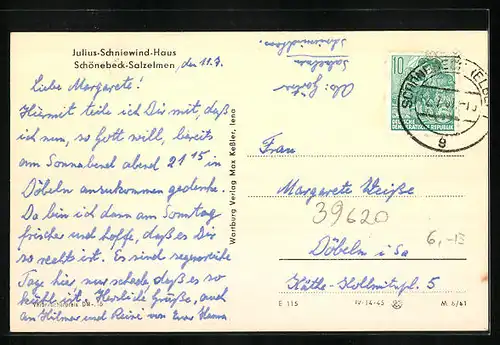 Julius-Schniewind-Haus
Schönebeck-Salzelmen, den 11.7.
Liebe Margarete!
Hiermit teile ich Dir mit, daß
ich nun, so Gott will, bereits
am Sonnabend abend 21 15 in
Döbeln anzukommen gedenke.
Da bin ich dann am Sonntag
frischer und hoffe, daß es Dir
so recht ist. Es sind segensreiche
Tage hier, nur schade, daß es so
kühl ist. Herzliche Grüße, auch
an Hilmar und von Eurer Hanna
Wartburg Verlag Max Keßler, Jena
Abs:
Salzelmen
Schniewindhaus
10
DEUTSCHE
DEMOKRATISCHE REPUBLIK
SCHÖNEBECK (ELBE) 1
g
Frau
Margarete Weiße
39620
Döbeln i Sa
6,-
Käthe-Kollwitzpl. 5
E 115
IV-14-45
M 6/61